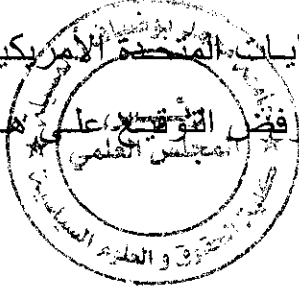 يات المتحدة الأمريكي
رفض التوقيع على ه
المجلس العلمي
كلية الحقوق و العلوم السياسية